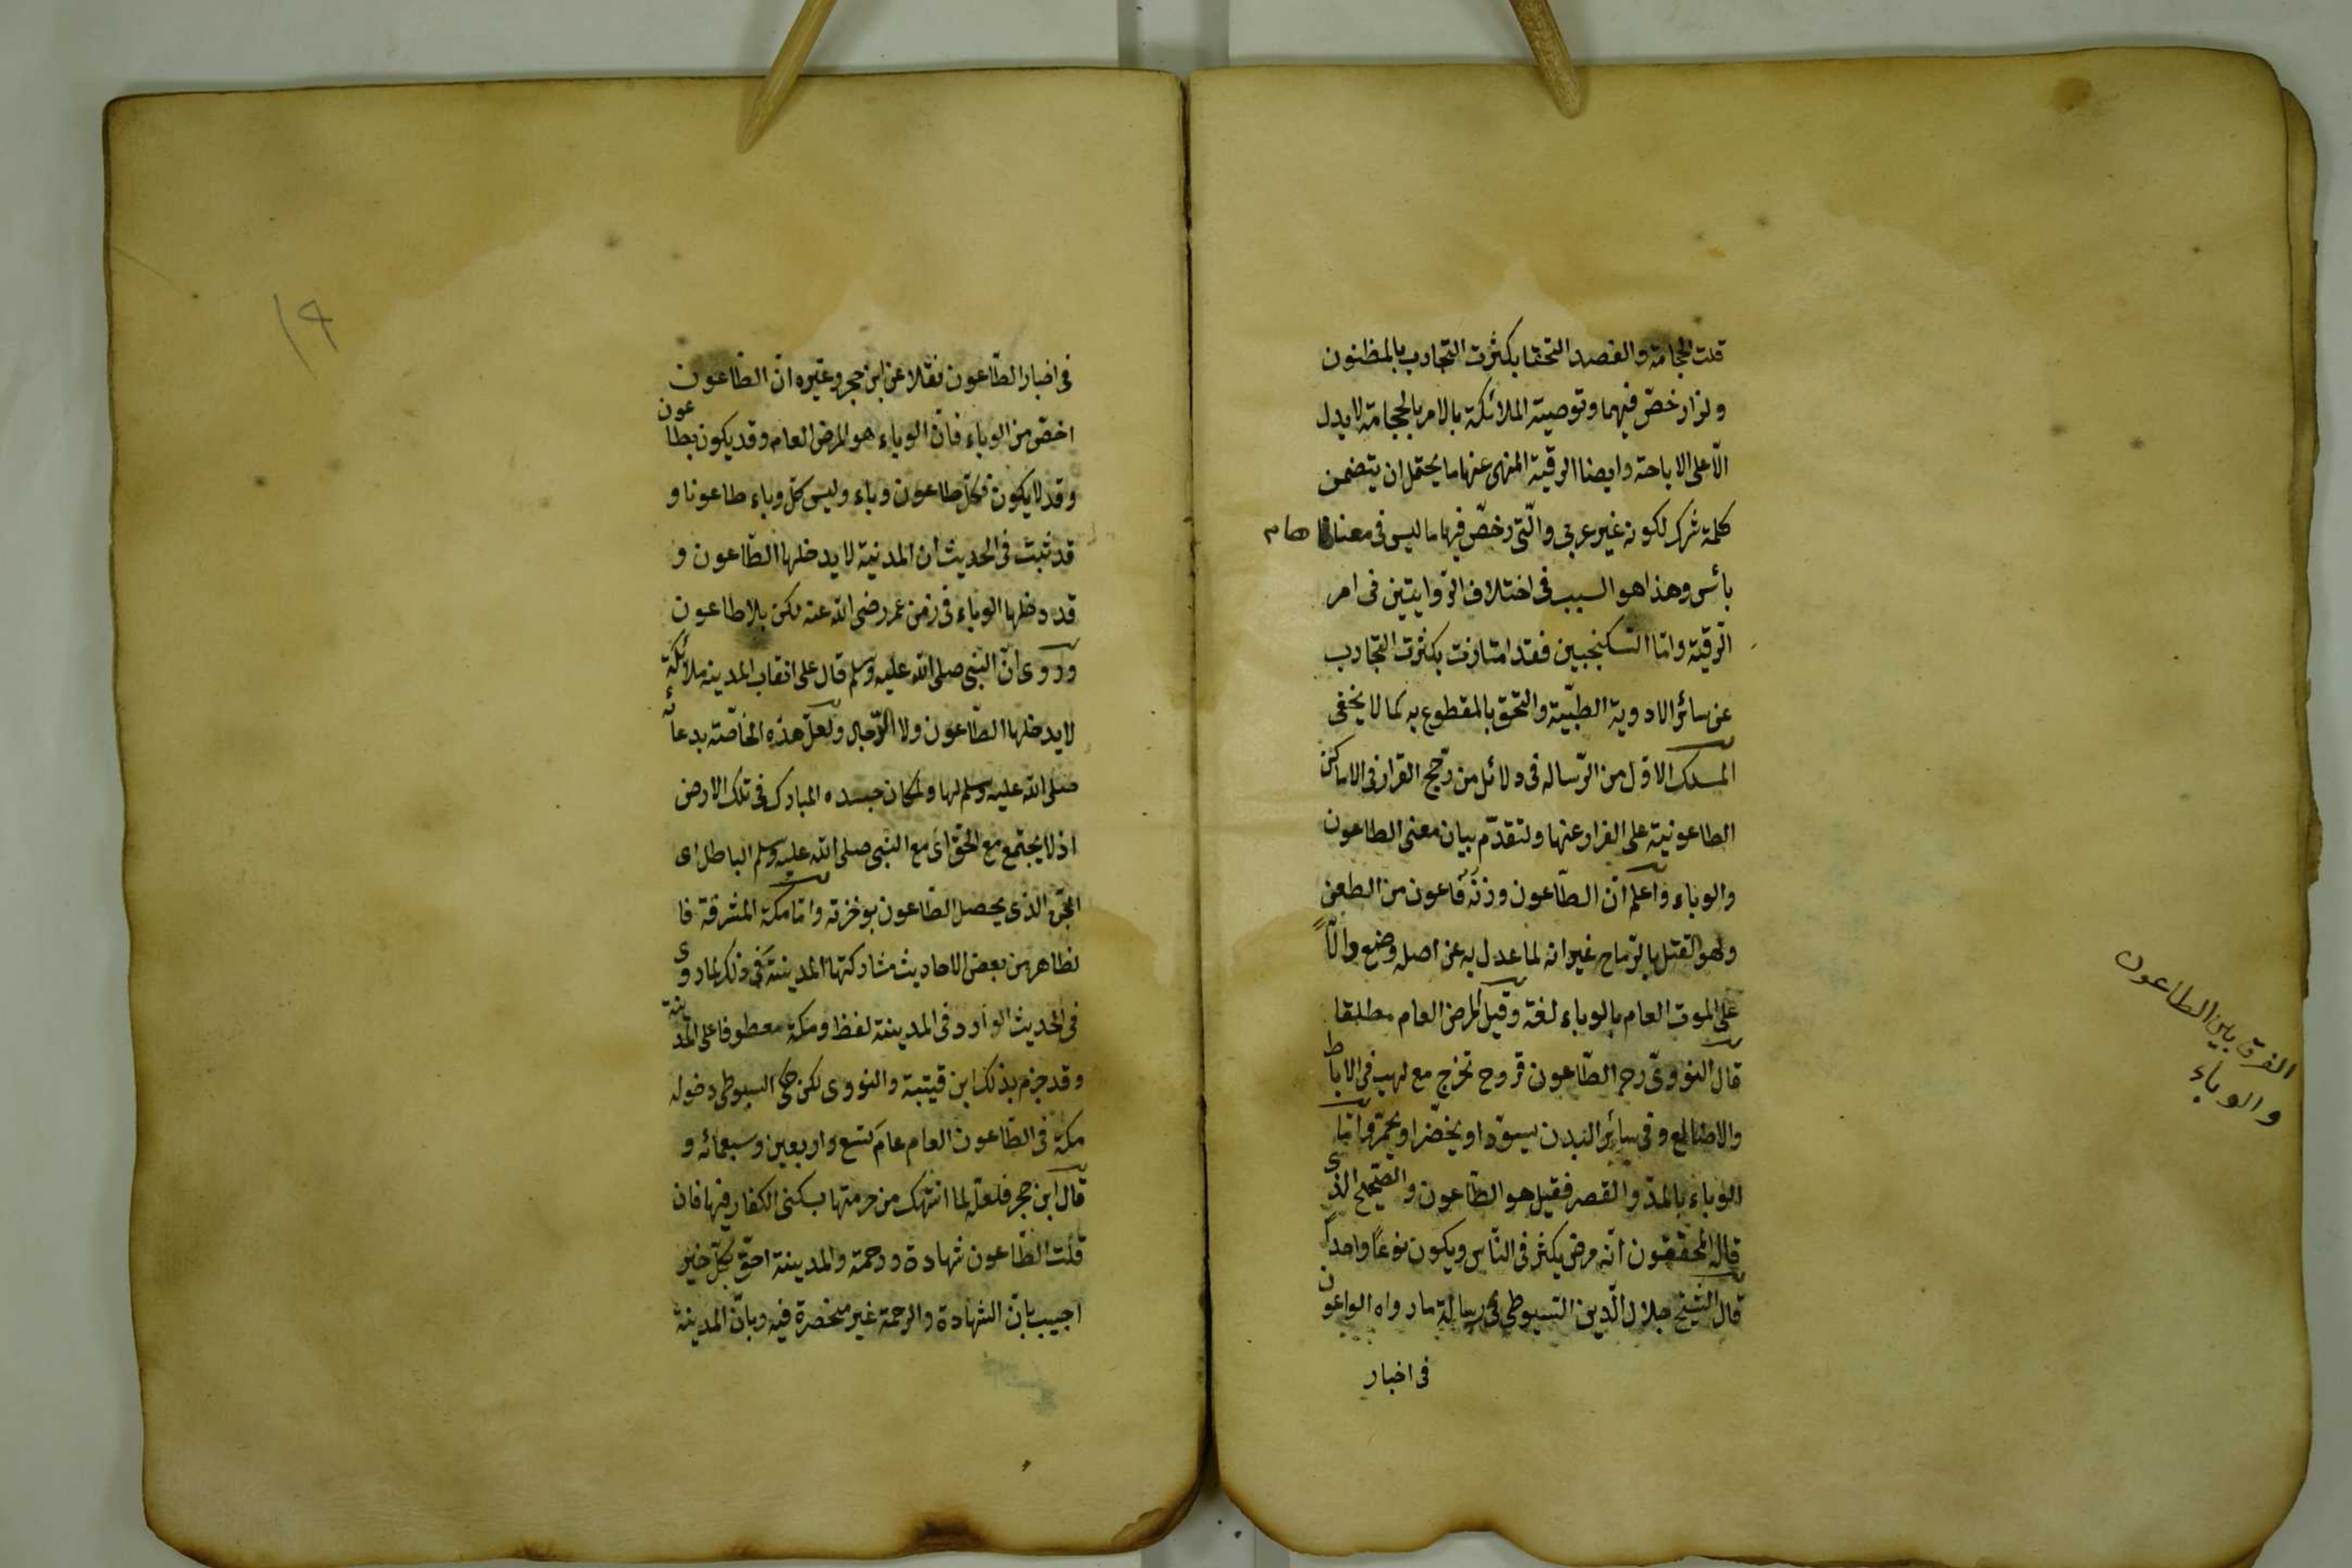 قلت الحجامة والفصد التحقا بكثرت التجارب بالمظنون
ولذا رخصّ فيهما وتوصية الملائكة بالامر بالحجامة لا يدل
الّا على الاباحة وايضا الرقية المنهى عنها ما يحتمل ان يتضمن
كلمة شرك لكونه غير عربي والّتى رخصّ فيها ما ليس فى معناها
بأس وهذا هو السبب فى اختلاف الرّوايتين فى امر
الرّقية وامّا السّكنجبين فقد امتازت بكثرت التجارب
عن سائر الادوية الطبّية والتحق بالمقطوع به كما لا يخفى
المسلك الاوّل من الرّساله فى دلائل من رجّح القرار فى الاماكن
الطاعونية على الفرار عنها ولنقدّم بيان معنى الطاعون
والوباء واعلم انّ الطّاعون وزنه فاعون من الطعن
وهو القتل بالرّماح غير انه لما عدل به عن اصله وضع دالّاً
على الموت العام بالوباء لغة وقيل المرض العام مطلقا
قال النووىّ رح الطّاعون قروح تخرج مع لهيب فى الاباط
والاصابع وفى سائر البدن يسودّ او يخضّر او يحمّر وامّا
الوباء بالمدّ والقصر فقيل هو الطّاعون والصّحيح الذى
قاله المحققون انّه مرض يكثر فى النّاس ويكون نوعاً واحداً
قال الشّيخ جلال الّدين السّيوطى فى رسالة ما رواه الواعون
فى اخبار
الفرق بين الطاعون
والوباء
١٩
فى اخبار الطّاعون نقلا عن ابن حجر وغيره انّ الطّاعون
اخصّ من الوباء فانّ الوباء هو المرض العام وقد يكون بطاعون
وقد لا يكون فكلّ طاعون وباء وليس كلّ وباء طاعونا و
قد ثبت فى الحديث ان المدنية لا يدخلها الطّاعون و
قد دخلها الوباء فى زمن عمر رضى الله عنه لكن بلا طاعون
وروى انّ النّبى صلى الله عليه وسلم قال على انقاب المدينه ملائكة
لا يدخلها الطّاعون ولا الدّجال ولعلّ هذه الخاصّة بدعائه
صلى الله عليه وسلم لها ولمكان جسده المبارك فى تلك الارض
اذ لا يجتمع مع الحق اى مع النبى صلى الله عليه وسلم الباطل اى
الجنّ الذى يحصل الطّاعون بوخزته وامّا مكة المشرفة فا
لظاهر من بعض الاحاديث مشاركتها المدينة فى ذلك لما روى
فى الحديث الوارد فى المدينة لفظ ومكة معطوفا على المدينة
وقد جزم بذلك ابن قيتبة والنووى لكن حكى السيوطى دخوله
مكة فى الطّاعون العام عام تسع واربعين وسبعمائه و
قال ابن حجر فلعلّه لما انتهك من حرمتها بسكنى الكفار فيها فان
قلت الطّاعون شهادة ورحمة والمدينة احقّ بكلّ خير
اجيب بانّ الشهادة والرحمة غير منحصرة فيه وبانّ المدينة